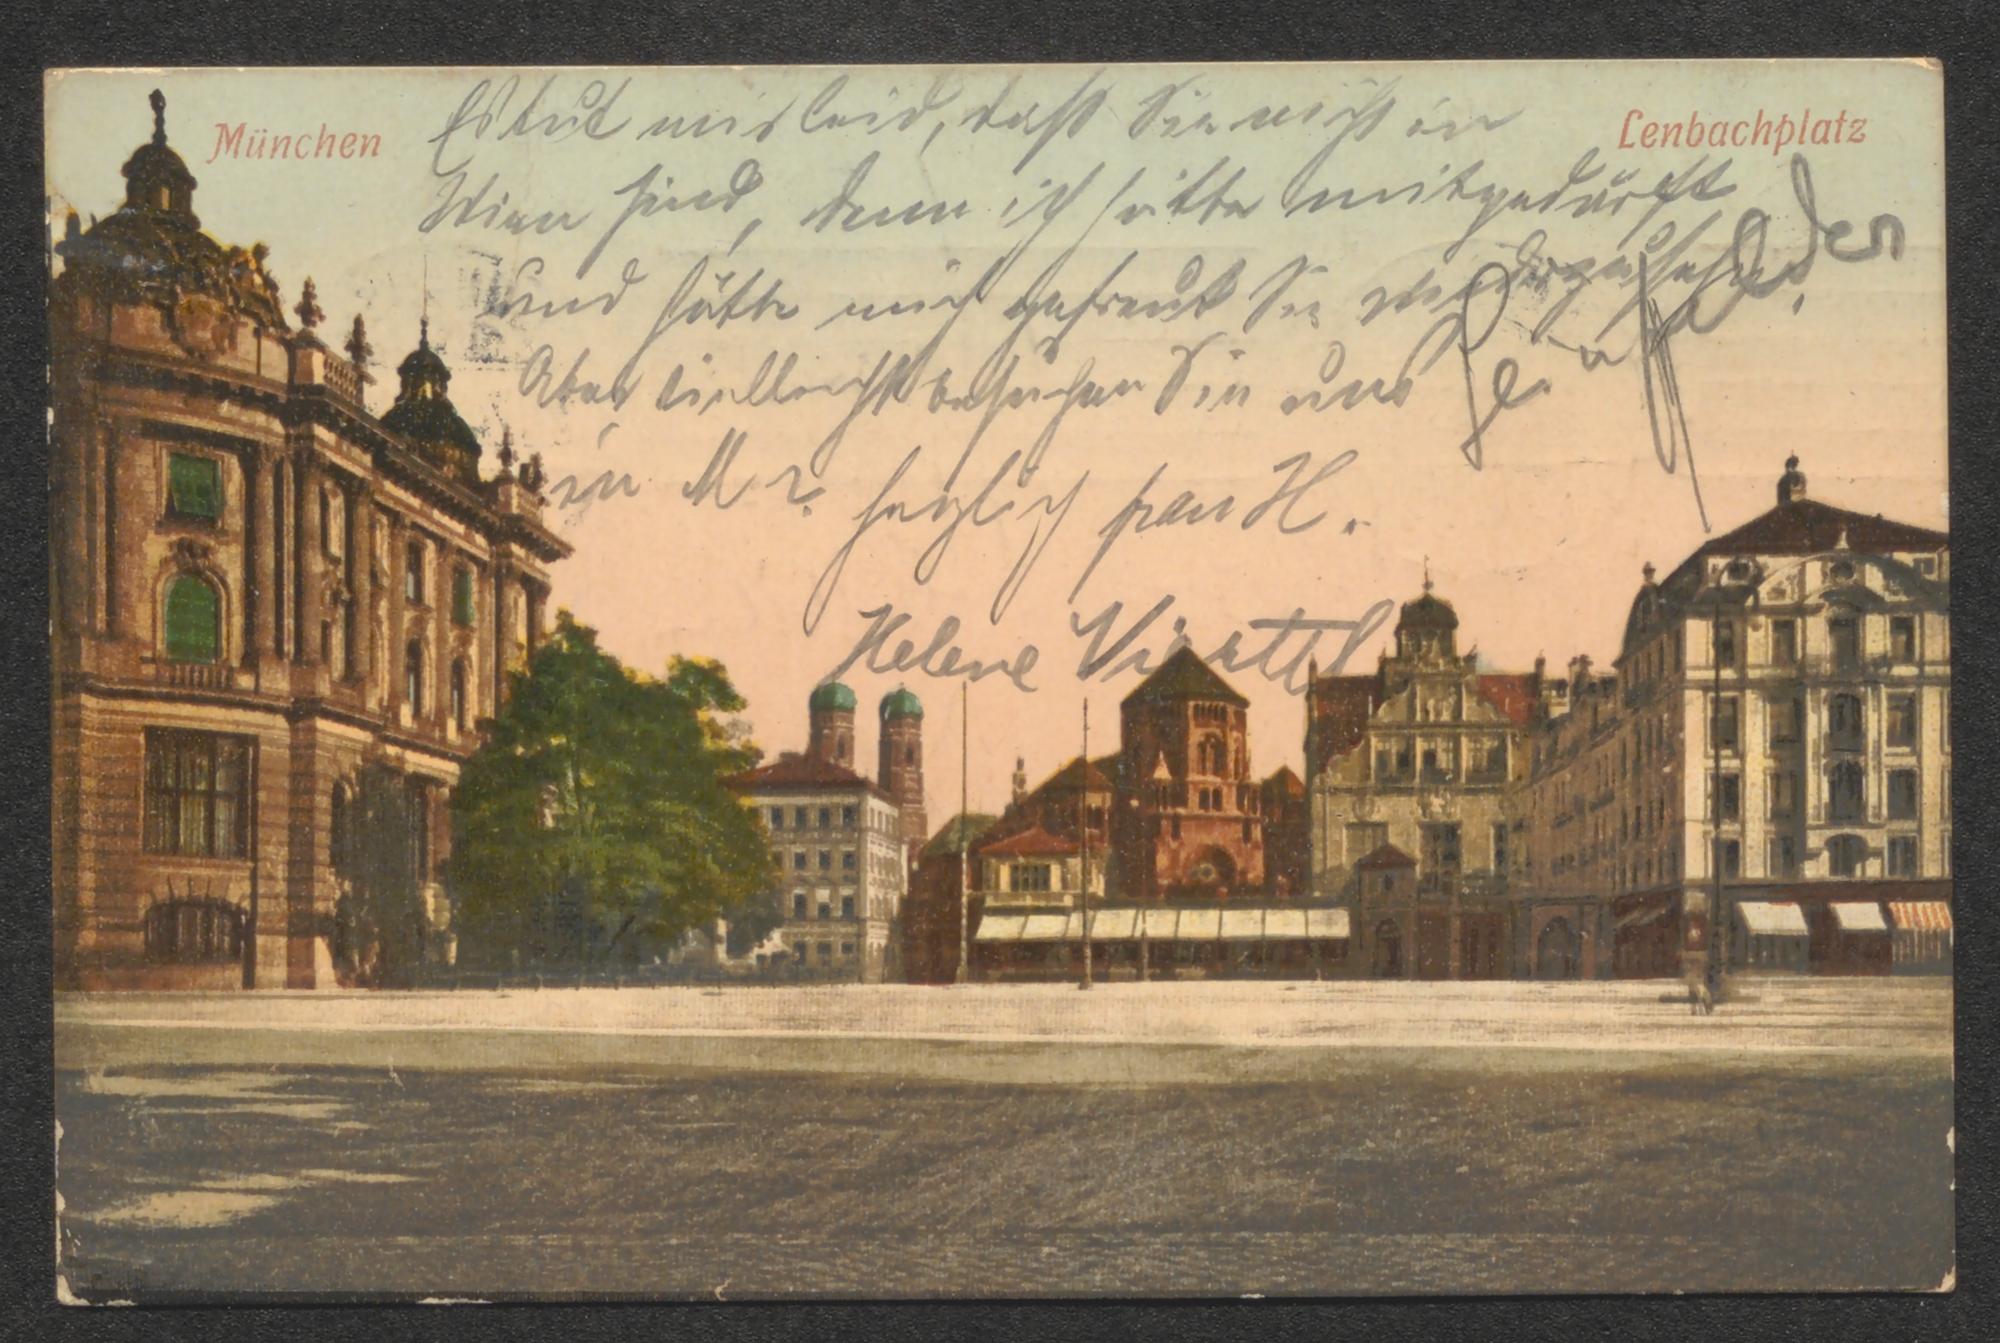 München
Lenbachplatz
Es tut mir leid, daß Sie nicht in
Wien sind, denn ich hätte mitgedürft
und hätte mich gefreut Sie wiederzusehen.
Aber vielleicht besuchen Sie uns
in M?
herzlich
H.
Helene Viertel